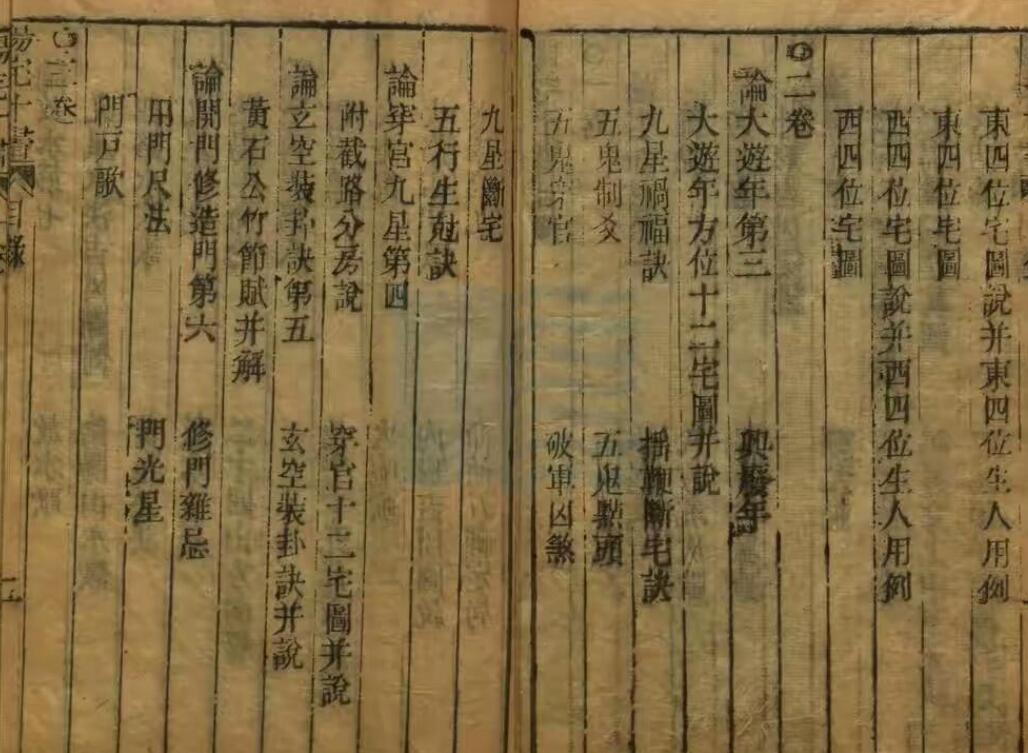 東四位宅圖說并東四位生人用例
東四位宅圖
西四位宅圖說并西四位生人用例
西四位宅圖
○二卷
論大遊年第三 興廢年
大遊年方位十二宅圖并說
九星禍福訣 搖鞭斷宅訣
五鬼制爻 五鬼㸃頭
五鬼穿宮 破軍凶煞
九星斷宅
五行生尅訣
論穿宮九星第四
附截路分房說 穿宮十二宅圖并說
論玄空裝卦訣第五 玄空裝卦訣并說
黃石公竹節賦并解
論開門修造門第六 修門雜忌
用門尺法 門光星
門戸歌
○三卷
陽宅十書 目錄 二